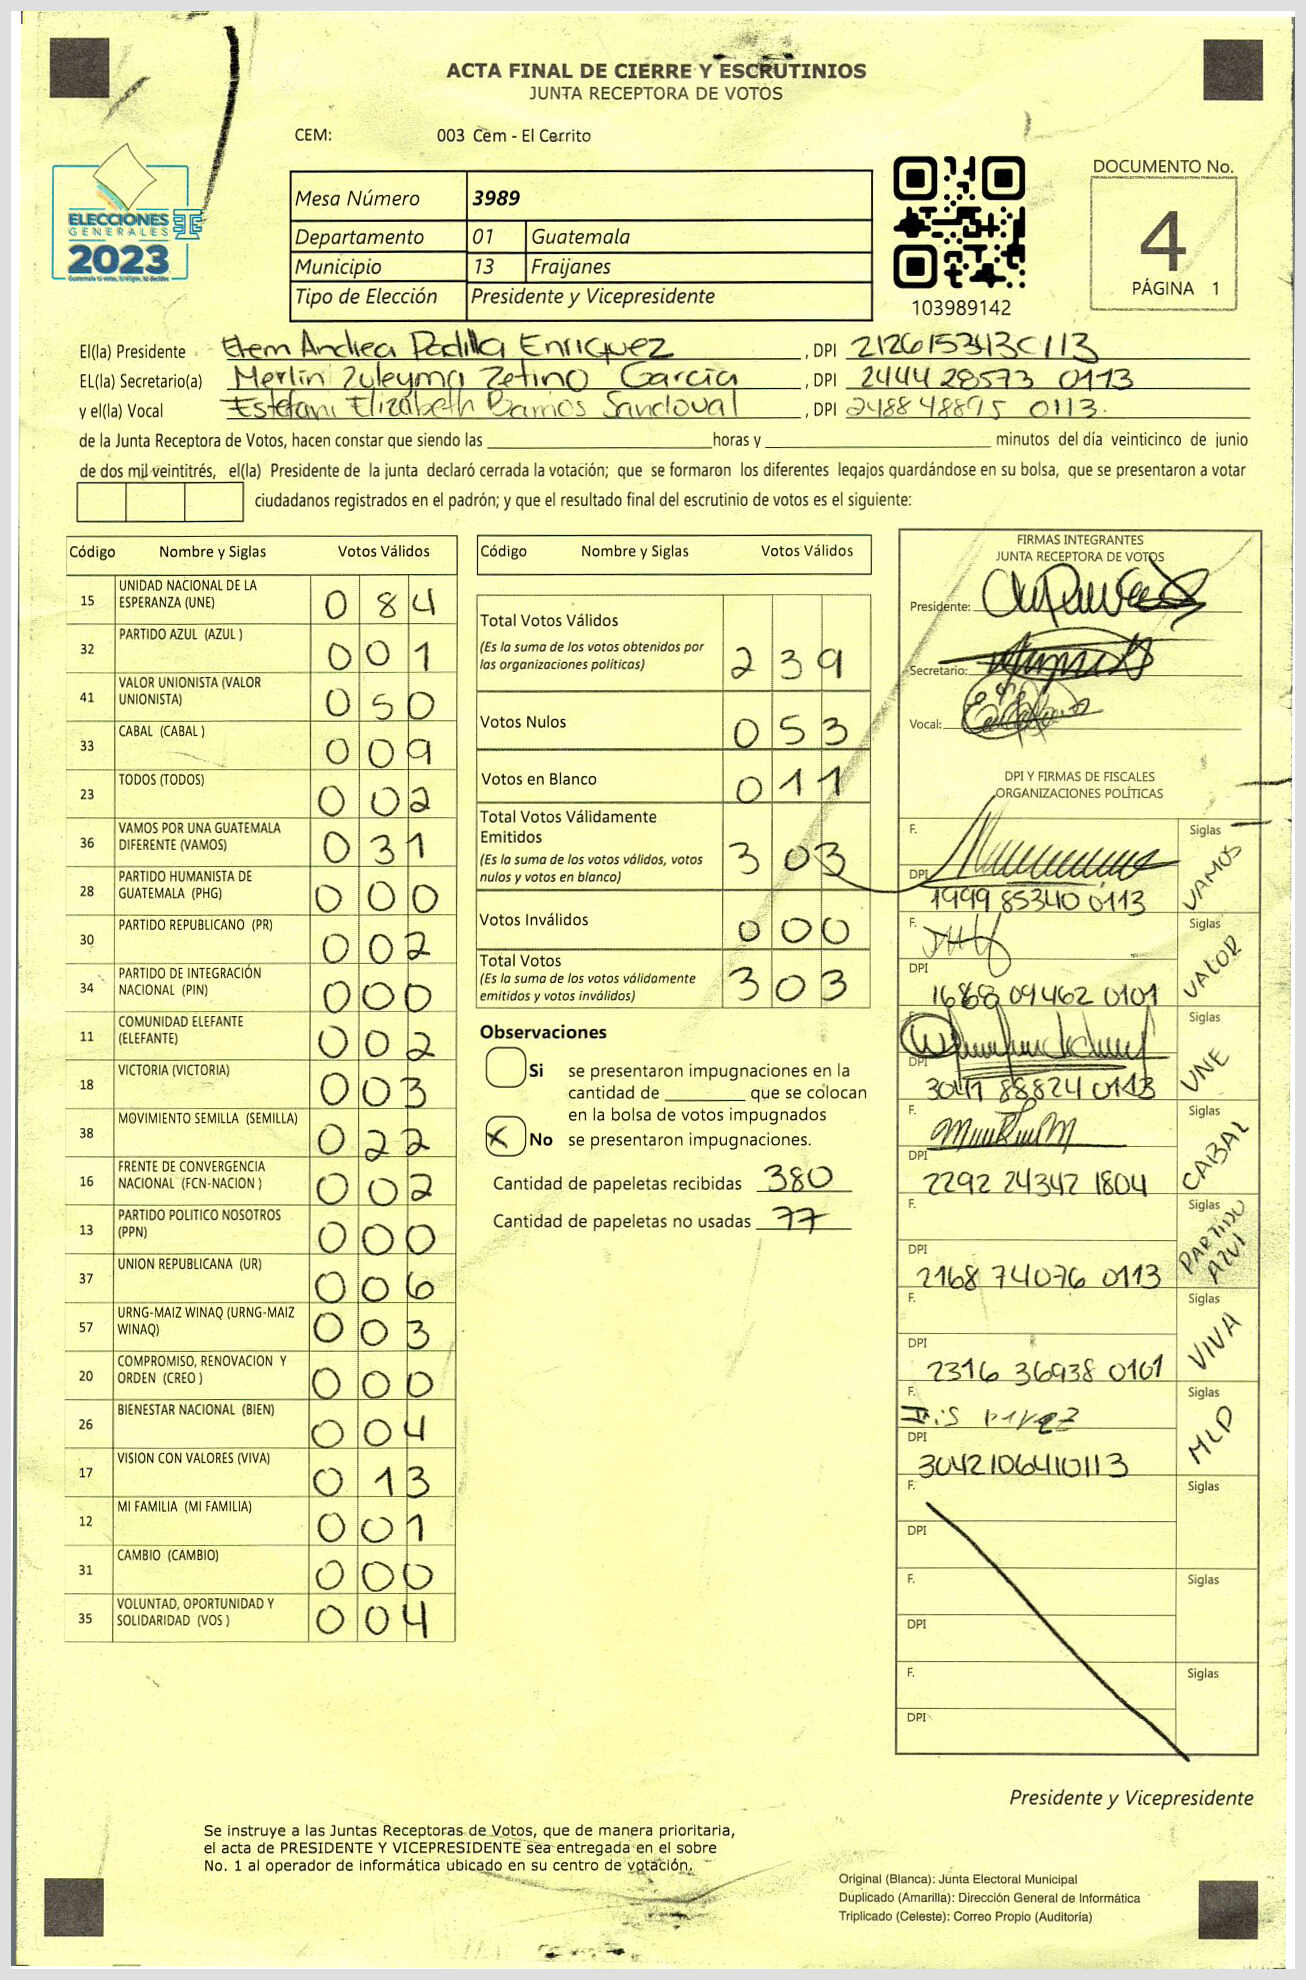 ACTA FINAL DE CIERRE Y ESCRUTINIOS
JUNTA RECEPTORA DE VOTOS
CEM: 003 Cem - El Cerrito
ELECCIONES
GENERALES
2023
Mesa Número 3989
Departamento 01 Guatemala
Municipio 13 Fraijanes
Tipo de Elección Presidente y Vicepresidente
103989142
DOCUMENTO No.
4
PÁGINA 1
El(la) Presidente Andrea Padilla Enriquez , DPI
EL(la) Secretario(a) Merlin Zuleyma Zetino Garcia , DPI 2444 28573 0113
y el(la) Vocal Estefani Elizabeth Barrios Sandoval , DPI 248848895 0113.
de la Junta Receptora de Votos, hacen constar que siendo las horas y minutos del día veinticinco de junio
de dos mil veintitrés, el(la) Presidente de la junta declaró cerrada la votación; que se formaron los diferentes legajos guardándose en su bolsa, que se presentaron a votar
ciudadanos registrados en el padrón; y que el resultado final del escrutinio de votos es el siguiente:
Código Nombre y Siglas Votos Válidos
15 UNIDAD NACIONAL DE LA ESPERANZA (UNE) 0 8 4
32 PARTIDO AZUL (AZUL ) 0 0 1
41 VALOR UNIONISTA (VALOR UNIONISTA) 0 5 0
33 CABAL (CABAL ) 0 0 9
23 TODOS (TODOS) 0 0 2
36 VAMOS POR UNA GUATEMALA DIFERENTE (VAMOS) 0 3 1
28 PARTIDO HUMANISTA DE GUATEMALA (PHG) 0 0 0
30 PARTIDO REPUBLICANO (PR) 0 0 2
34 PARTIDO DE INTEGRACIÓN NACIONAL (PIN) 0 0 0
11 COMUNIDAD ELEFANTE (ELEFANTE) 0 0 2
18 VICTORIA (VICTORIA) 0 0 3
38 MOVIMIENTO SEMILLA (SEMILLA) 0 2 2
16 FRENTE DE CONVERGENCIA NACIONAL (FCN-NACION ) 0 0 2
13 PARTIDO POLITICO NOSOTROS (PPN) 0 0 0
37 UNION REPUBLICANA (UR) 0 0 6
57 URNG-MAIZ WINAQ (URNG-MAIZ WINAQ) 0 0 3
20 COMPROMISO, RENOVACION Y ORDEN (CREO ) 0 0 0
26 BIENESTAR NACIONAL (BIEN) 0 0 4
17 VISION CON VALORES (VIVA) 0 1 3
12 MI FAMILIA (MI FAMILIA) 0 0 1
31 CAMBIO (CAMBIO) 0 0 0
35 VOLUNTAD, OPORTUNIDAD Y SOLIDARIDAD (VOS ) 0 0 4
Código Nombre y Siglas Votos Válidos
Total Votos Válidos 2 3 9
(Es la suma de los votos obtenidos por
las organizaciones políticas)
Votos Nulos 0 5 3
Votos en Blanco 0 1 1
Total Votos Válidamente
Emitidos 3 0 3
(Es la suma de los votos válidos, votos
nulos y votos en blanco)
Votos Inválidos 0 0 0
Total Votos 3 0 3
(Es la suma de los votos válidamente
emitidos y votos inválidos)
Observaciones
Si se presentaron impugnaciones en la
cantidad de que se colocan
en la bolsa de votos impugnados
X No se presentaron impugnaciones.
Cantidad de papeletas recibidas 380
Cantidad de papeletas no usadas 77
FIRMAS INTEGRANTES
JUNTA RECEPTORA DE VOTOS
Presidente:
Secretario:
Vocal:
DPI Y FIRMAS DE FISCALES
ORGANIZACIONES POLÍTICAS
F. Siglas VAMOS
DPI 1999 85340 0113
F. Siglas VALOR
DPI 1688 09462 0101
F. Siglas UNE
DPI 3041 88824 0113
F. Siglas CABAL
DPI 2292 24342 1804
F. Siglas PARTIDO AZUL
DPI 2168 74076 0113
F. Siglas VIVA
DPI 2316 36938 0101
F. Siglas MLD
DPI 3042106410113
F. Siglas
DPI
F. Siglas
DPI
F. Siglas
DPI
Presidente y Vicepresidente
Se instruye a las Juntas Receptoras de Votos, que de manera prioritaria,
el acta de PRESIDENTE Y VICEPRESIDENTE sea entregada en el sobre
No. 1 al operador de informática ubicado en su centro de votación.
Original (Blanca): Junta Electoral Municipal
Duplicado (Amarilla): Dirección General de Informática
Triplicado (Celeste): Correo Propio (Auditoría)